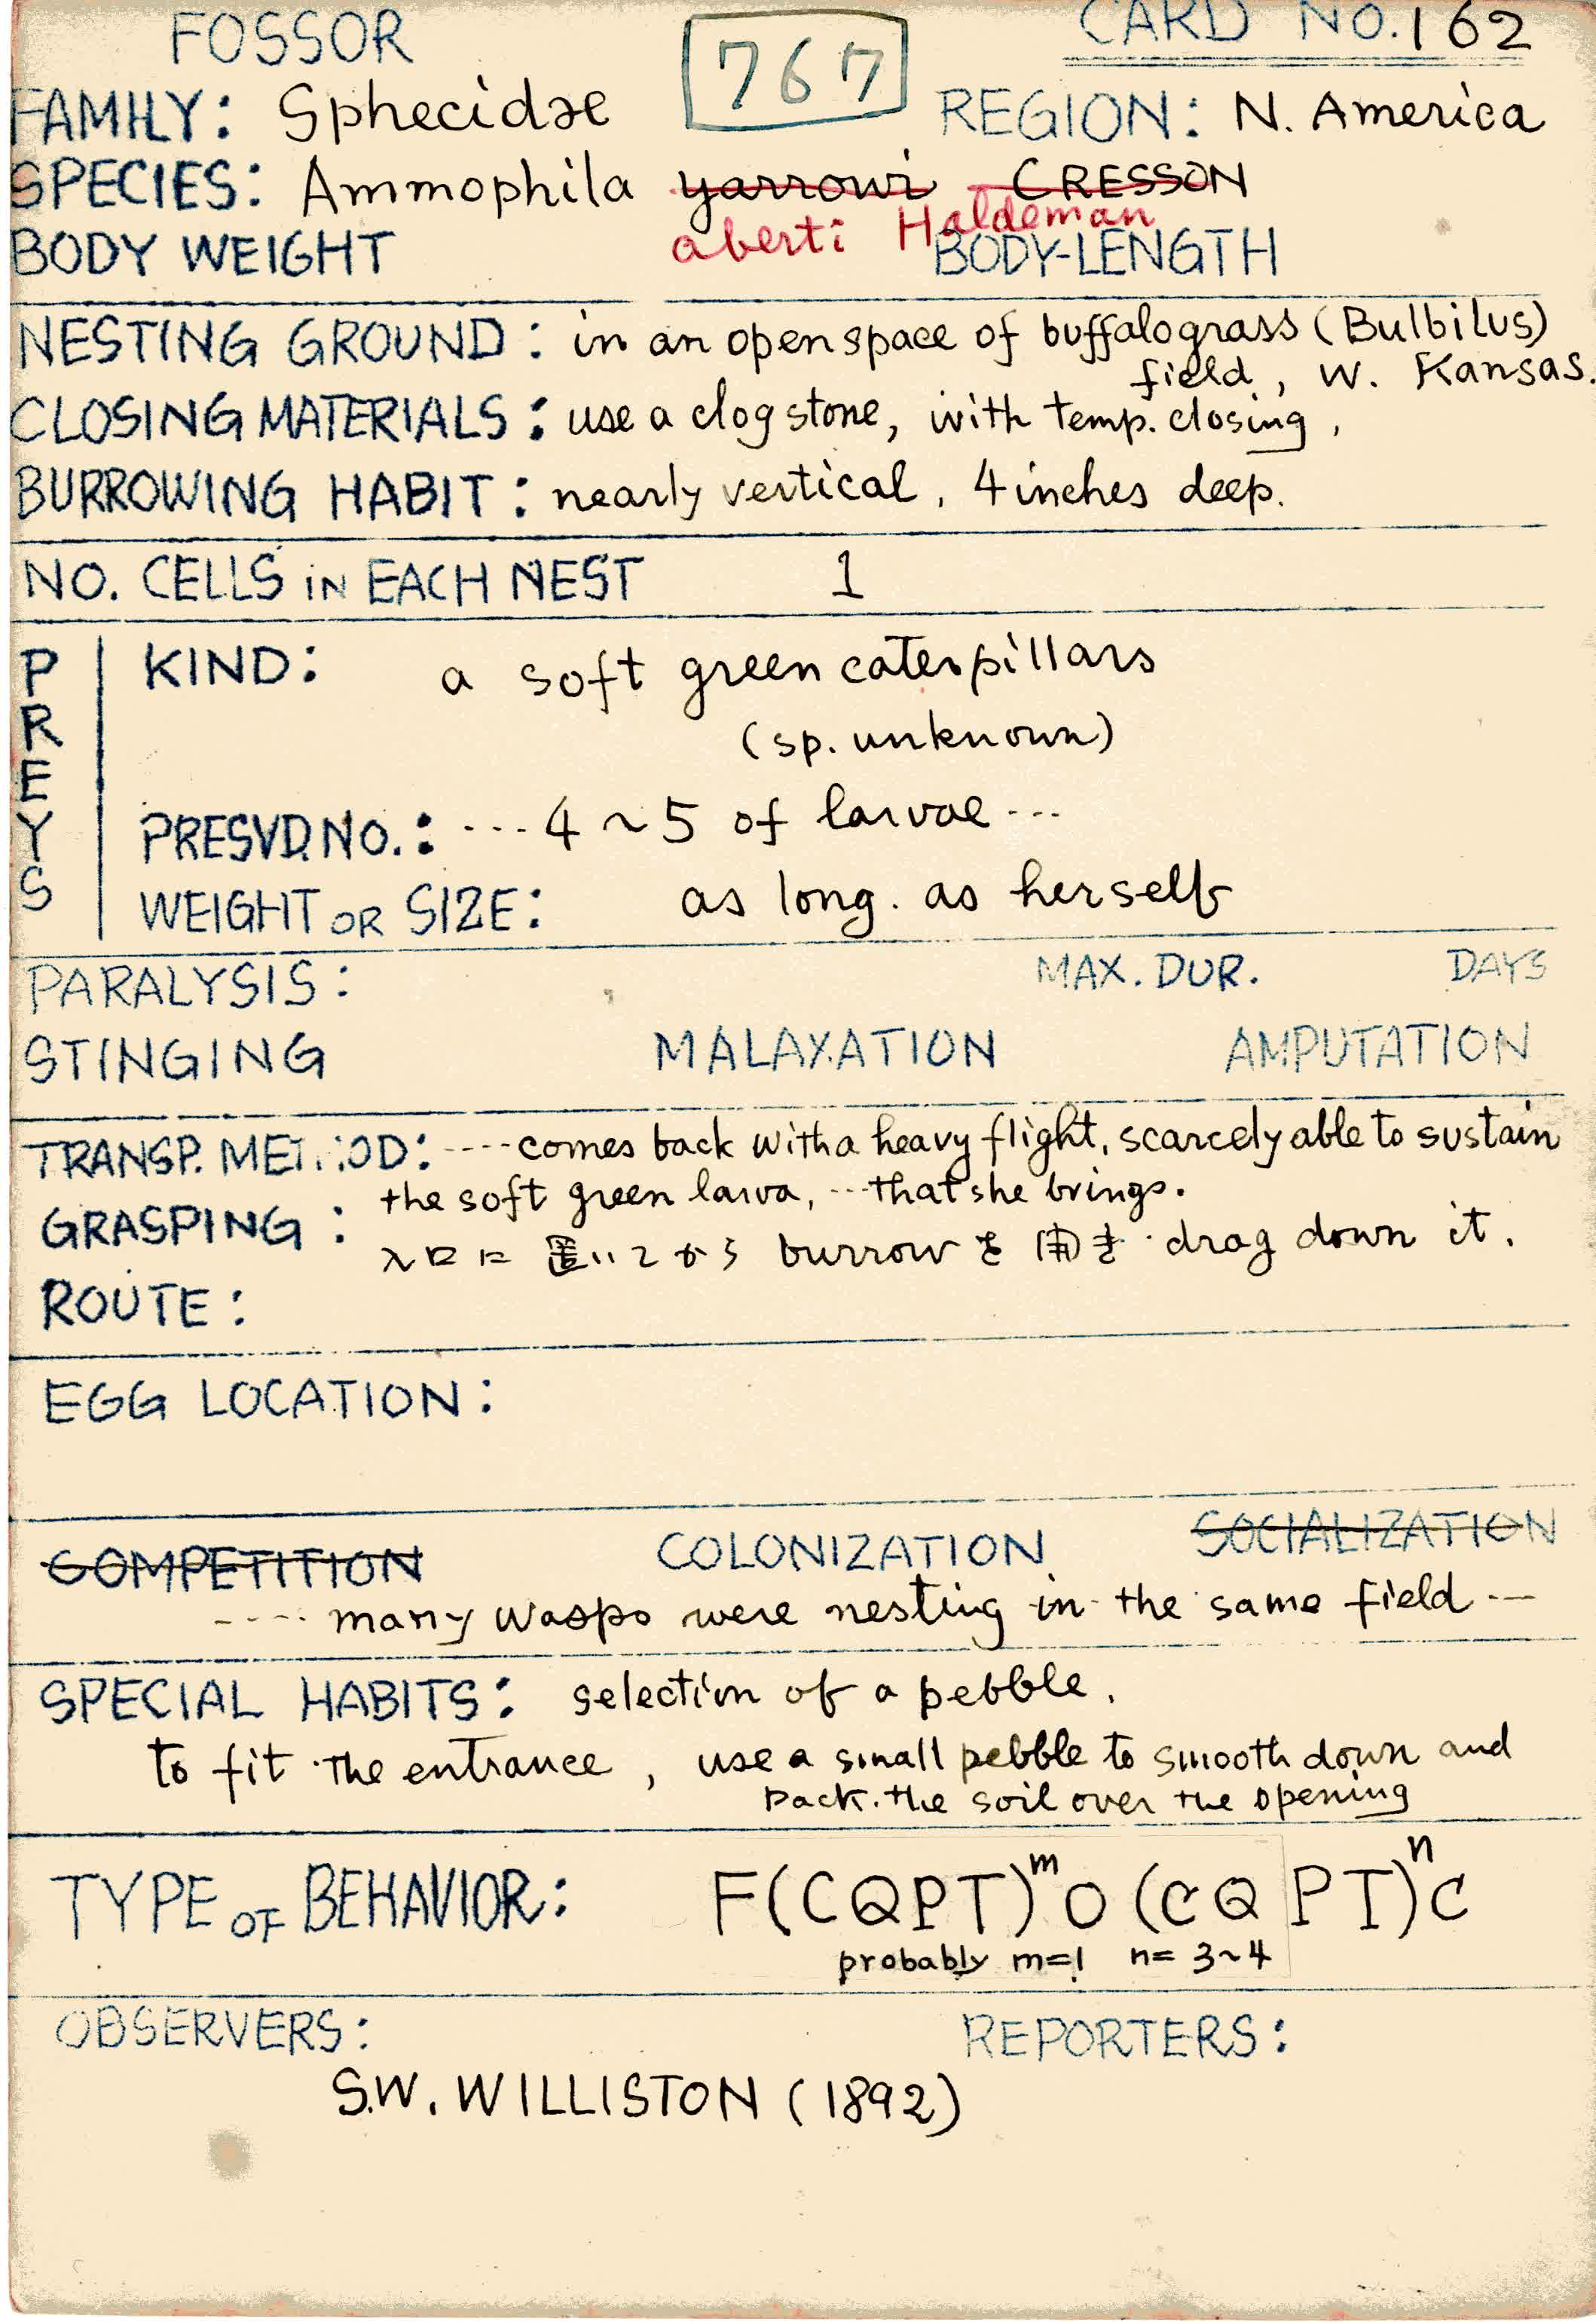 FOSSOR
767
CARD NO. 162
FAMILY: Sphecidae
REGION: N. America
SPECIES: Ammophila yarrowi CRESSON
aberti Haldeman
BODY WEIGHT
BODY-LENGTH
NESTING GROUND: in an open space of buffalograss (Bulbilus)
field, W. Kansas.
CLOSING MATERIALS: use a clog stone, with temp. closing,
BURROWING HABIT: nearly vertical, 4 inches deep.
NO. CELLS IN EACH NEST 1
PREYS
KIND: a soft green caterpillars
(sp. unknown)
PRESVD. NO.: ... 4 ~ 5 of larvae ...
WEIGHT OR SIZE: as long. as herself
PARALYSIS: MAX. DUR. DAYS
STINGING MALAXATION AMPUTATION
TRANSP. : ---- comes back with a heavy flight, scarcely able to sustain
the soft green larva, ... that she brings.
GRASPING: 入口に置いてから burrow を開き drag down it.
ROUTE:
EGG LOCATION:
COMPETITION COLONIZATION SOCIALIZATION
---- many wasps were nesting in the same field ---
SPECIAL HABITS: selection of a pebble,
to fit the entrance, use a small pebble to smooth down and
pack. the soil over the opening
TYPE OF BEHAVIOR: F(CQPT)ᵐO(CQPT)ⁿC
probably m=1 n= 3~4
OBSERVERS: REPORTERS:
S.W. WILLISTON (1892)